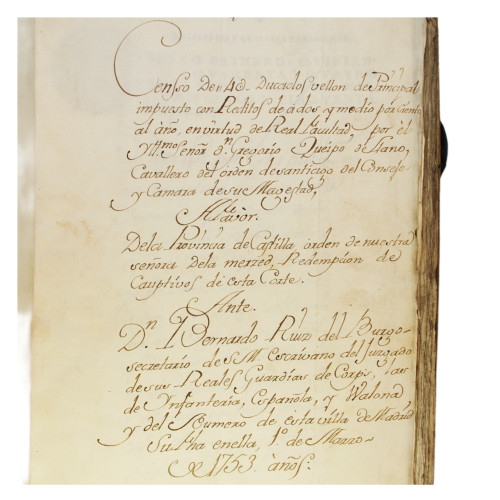 Censo De 48. Ducados vellon de Principal
impuesto con Reditos de a dos y medio por Ciento
al año, en virtud de Real facultad por el
Yll.mo Señor D.n Gregorio Queipo de Llano,
Cavallero del orden de santiago del Consejo
y Camara de su Magestad,
A favor.
De la Provincia de Castilla, orden de nuestra
señora De la merzed, Redempcion de
Cauptivos de esta Corte.
Ante.
D.n Bernardo Ruiz del Burgo
secretario de S.M. escrivano del Juzgado
de sus Reales Guardias de Corps, las
de Infanteria, Española, y Walona
y del Numero de esta villa de Madrid
Su fha en ella, 1.o de Marzo
de 1753. años.